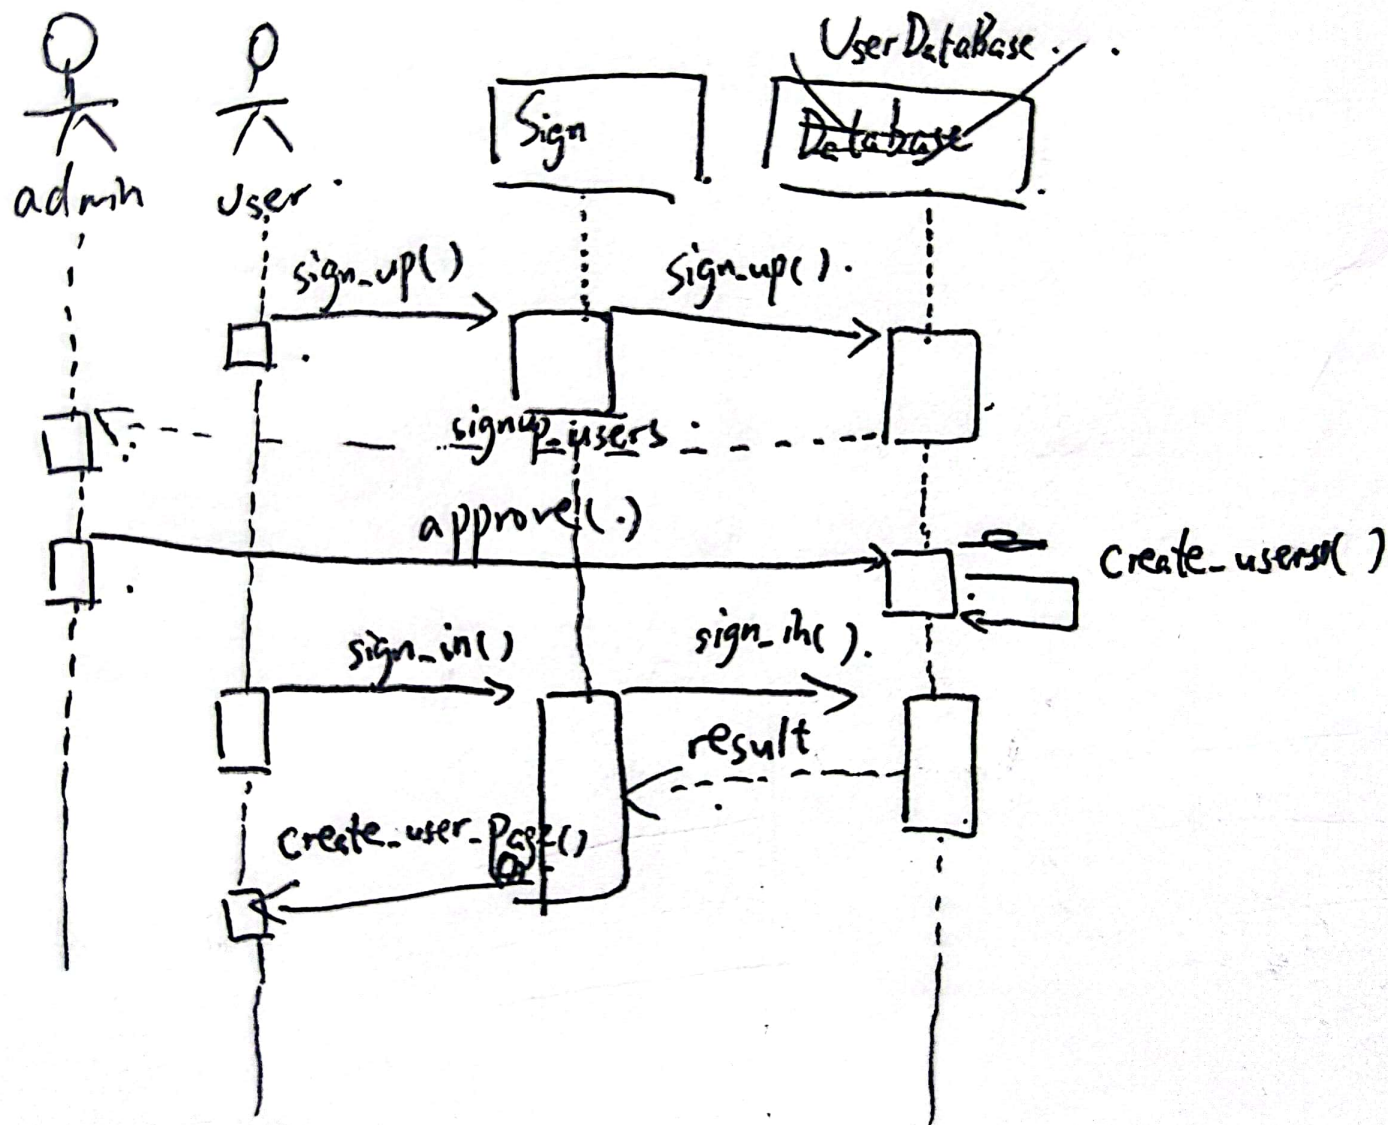 UserDataBase.
Sign
Database
admin
user.
sign_up()
sign_up().
signup_users
approve(.)
create_users()
sign_in()
sign_in().
result
create_user_page()